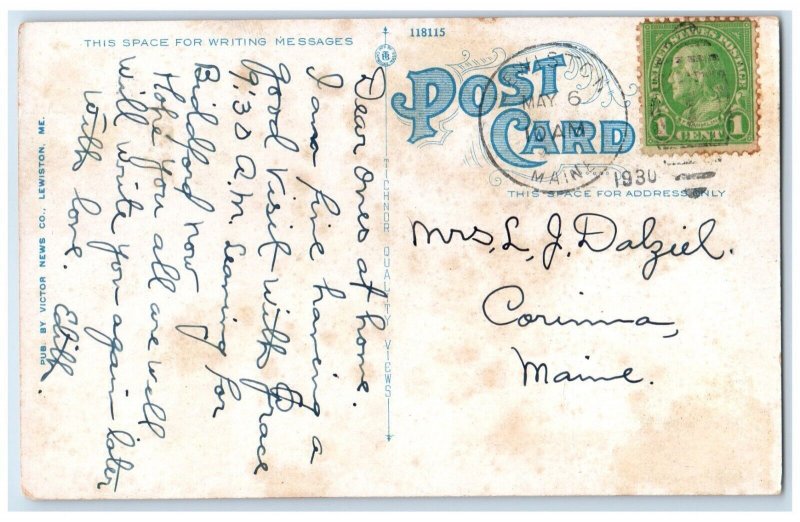 THIS SPACE FOR WRITING MESSAGES
118115
POST
CARD
THIS SPACE FOR ADDRESS ONLY
MAY 6
10 AM
MAINE
1930
UNITED STATES POSTAGE
1 CENT 1
Dear Ones at home.
I am fine having a
good visit with Grace
9:30 A.M. Leaving for
Biddford now
Hope you all are well
will write you again later
With love. Edith.
PUB. BY VICTOR NEWS CO., LEWISTON, ME.
TICHNOR QUALITY VIEWS
Mrs, L, J. Dalziel.
Corinna,
Maine.